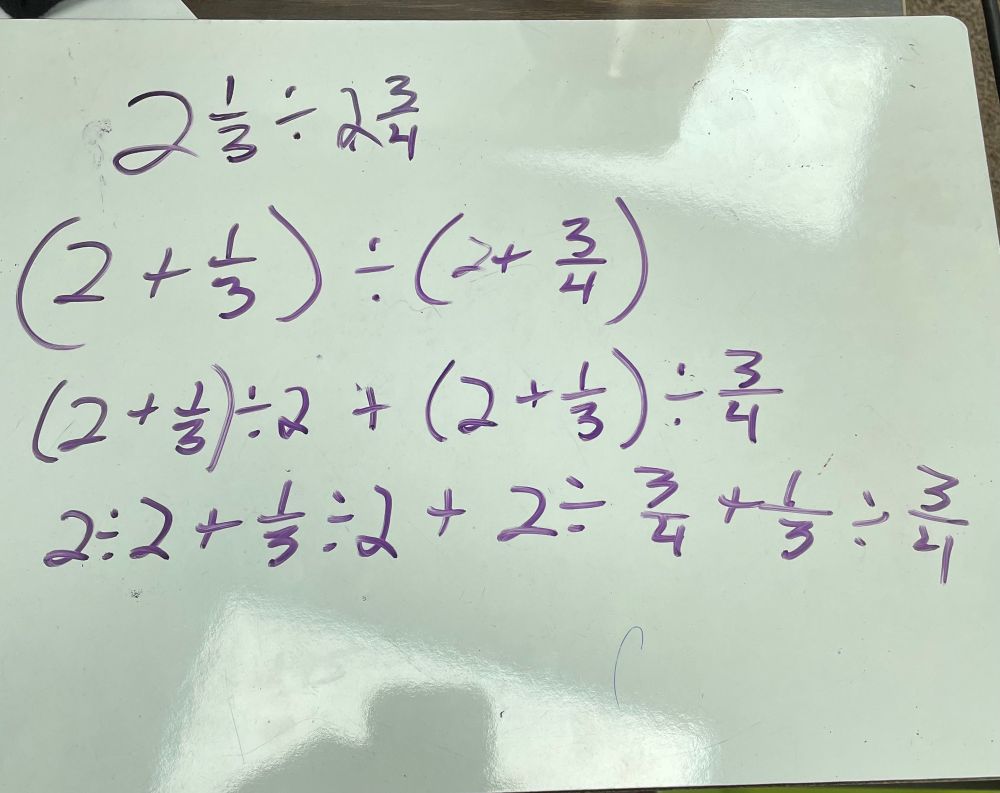 2 1/3 ÷ 2 3/4
(2 + 1/3) ÷ (2 + 3/4)
(2 + 1/3) ÷ 2 + (2 + 1/3) ÷ 3/4
2 ÷ 2 + 1/3 ÷ 2 + 2 ÷ 3/4 + 1/3 ÷ 3/4